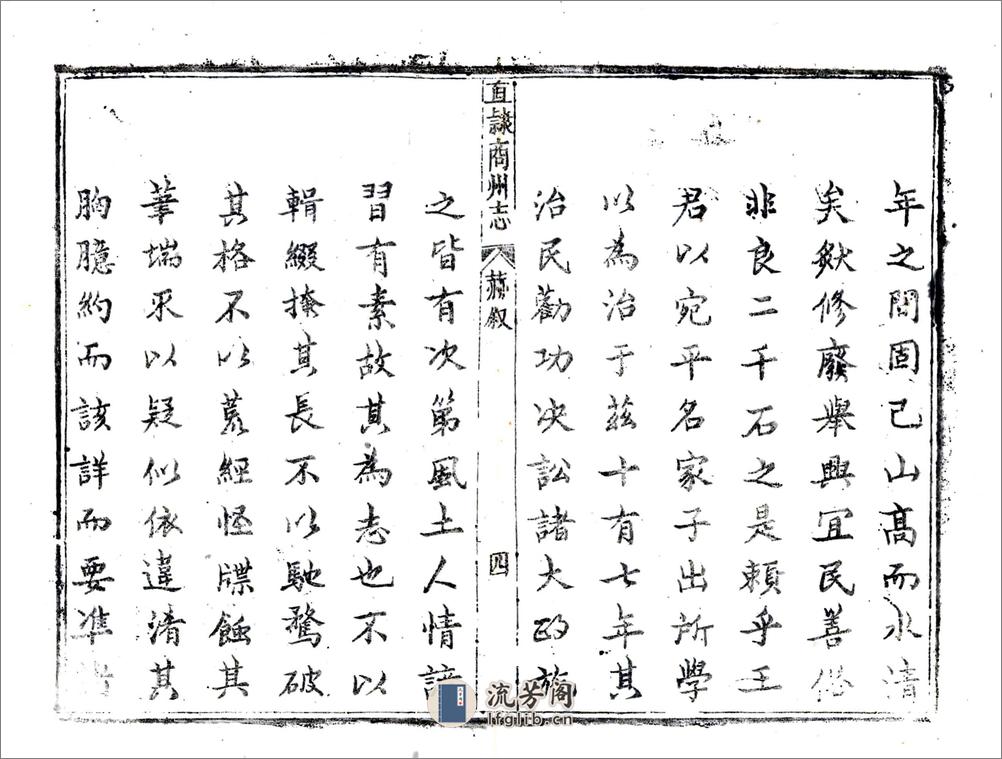 年之間固已山高而水清
矣猷修廢舉興宜民善俗
非良二千石之是賴乎王
君以宛平名家子出所學
以為治于茲十有七年其
治民勸功决訟諸大政施
直隷商州志
蔣叙
四
之皆有次第風土人情諳
習有素故其為志也不以
輯綴掩其長不以馳騖破
其格不以荒經怪牒蝕其
筆端采以疑似依違淆其
胸臆約而該詳而要準
流芳阁
lfglib.cn